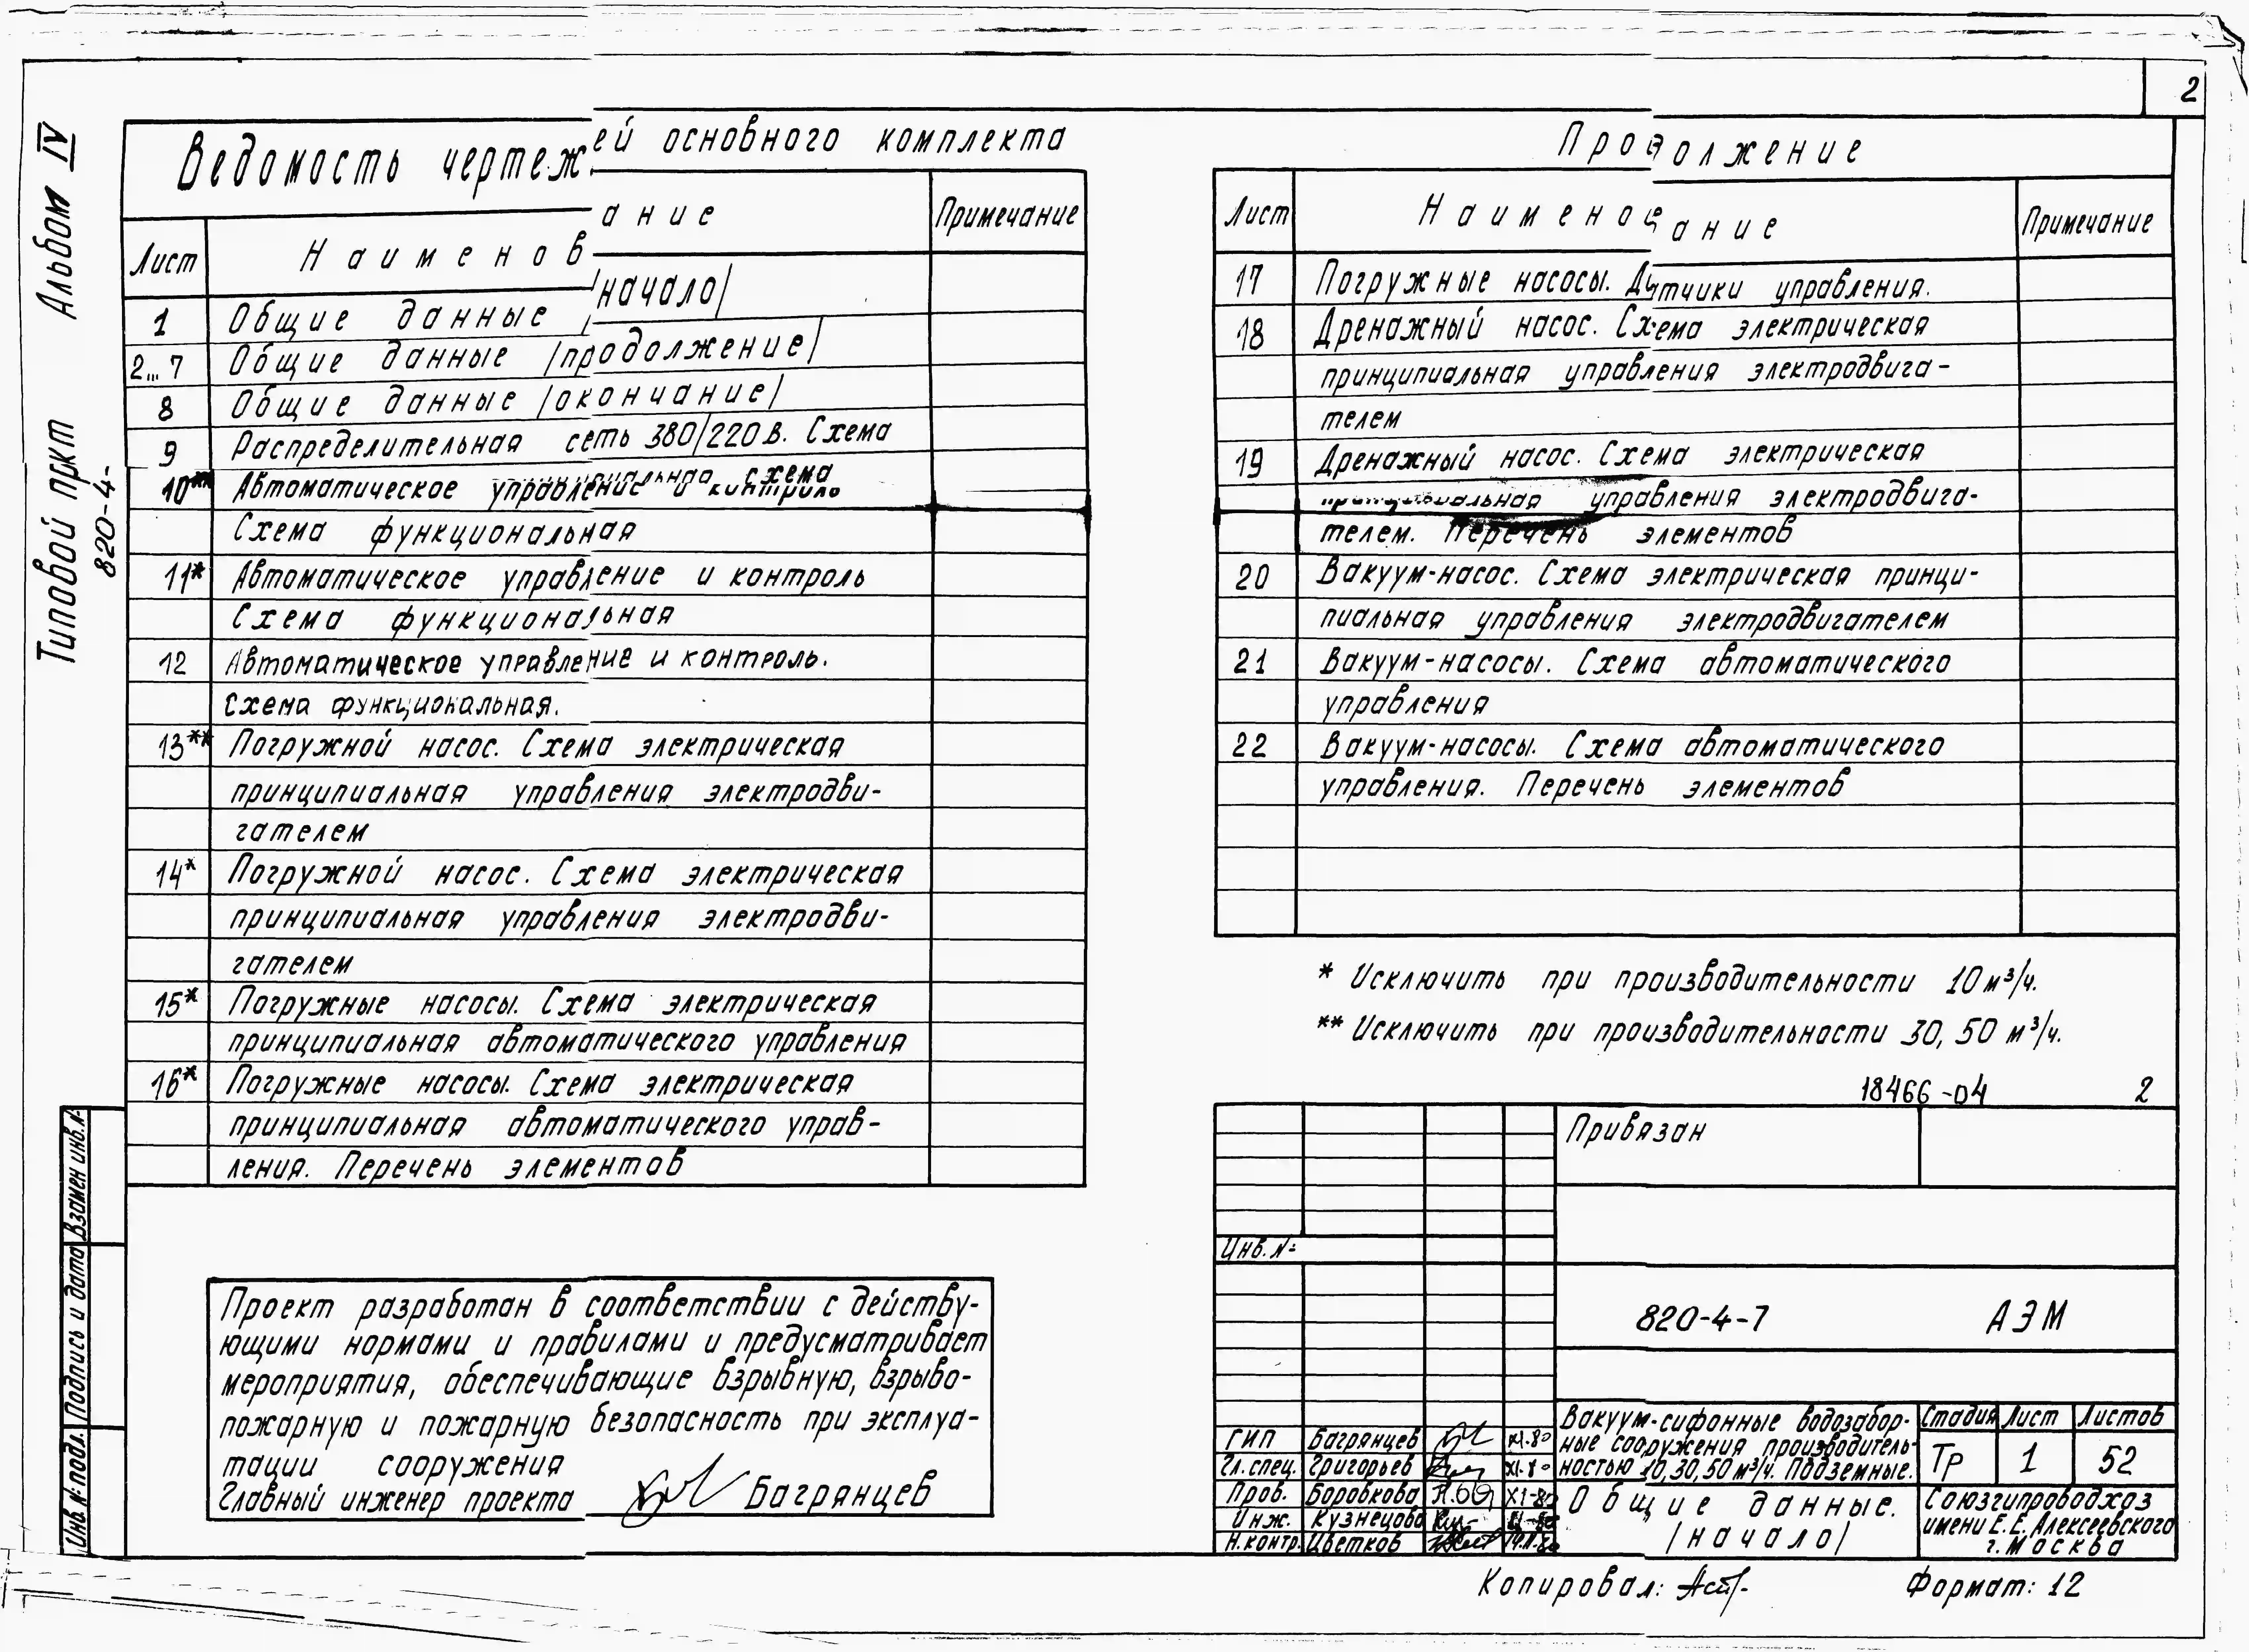 2
Альбом IV
Типовой пркт
820-4-
Ведомость чертежей основного комплекта
Лист Наименование Примечание
1 Общие данные /начало/
2...7 Общие данные /продолжение/
8 Общие данные /окончание/
9 Распределительная сеть 380/220В. Схема
схема
10** Автоматическое управление и контроль
Схема функциональная
11* Автоматическое управление и контроль
Схема функциональная
12 Автоматическое управление и контроль.
Схема функциональная.
13** Погружной насос. Схема электрическая
принципиальная управления электродви-
гателем
14* Погружной насос. Схема электрическая
принципиальная управления электродви-
гателем
15* Погружные насосы. Схема электрическая
принципиальная автоматического управления
16* Погружные насосы. Схема электрическая
принципиальная автоматического управ-
ления. Перечень элементов
Проект разработан в соответствии с действу-
ющими нормами и правилами и предусматривает
мероприятия, обеспечивающие взрывную, взрыво-
пожарную и пожарную безопасность при эксплуа-
тации сооружения
Главный инженер проекта Багрянцев
Продолжение
Лист Наименование Примечание
17 Погружные насосы. Датчики управления.
18 Дренажный насос. Схема электрическая
принципиальная управления электродвига-
телем
19 Дренажный насос. Схема электрическая
принципиальная управления электродвига-
телем. Перечень элементов
20 Вакуум-насос. Схема электрическая принци-
пиальная управления электродвигателем
21 Вакуум-насосы. Схема автоматического
управления
22 Вакуум-насосы. Схема автоматического
управления. Перечень элементов
* Исключить при производительности 10 м³/ч.
** Исключить при производительности 30, 50 м³/ч.
18466-04 2
Привязан
Инв.№
820-4-7 АЭМ
ГИП Багрянцев XI.80
Гл.спец. Григорьев XI.80
Пров. Боровкова XI-80
Инж. Кузнецова XI-80
Н.контр. Цветков
Вакуум-сифонные водозабор-
ные сооружения производитель-
ностью 10,30,50 м³/ч. Подземные.
Стадия Лист Листов
Тр 1 52
Общие данные.
/начало/
Союзгипроводхоз
имени Е.Е. Алексеевского
г. Москва
Копировал:
Формат: 12
Взамен инв.№
Подпись и дата
Инв.№ подл.